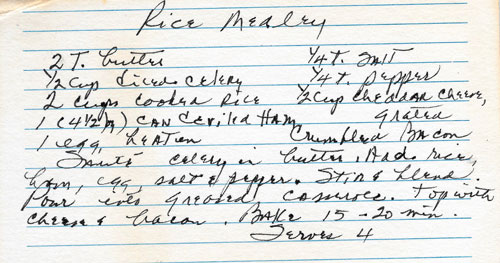 Rice Medley
2 T. butter 1/4 t. salt
1/2 cup diced celery 1/4 t. pepper
2 cups cooked rice 1/2 cup cheddar cheese,
1 (4 1/2 oz) can deviled ham grated
1 egg, beaten Crumbled Bacon
Sauté celery in butter. Add rice,
ham, egg, salt & pepper. Stir & blend.
Pour into greased casserole. Top with
cheese & bacon. Bake 15-20 min.
Serves 4